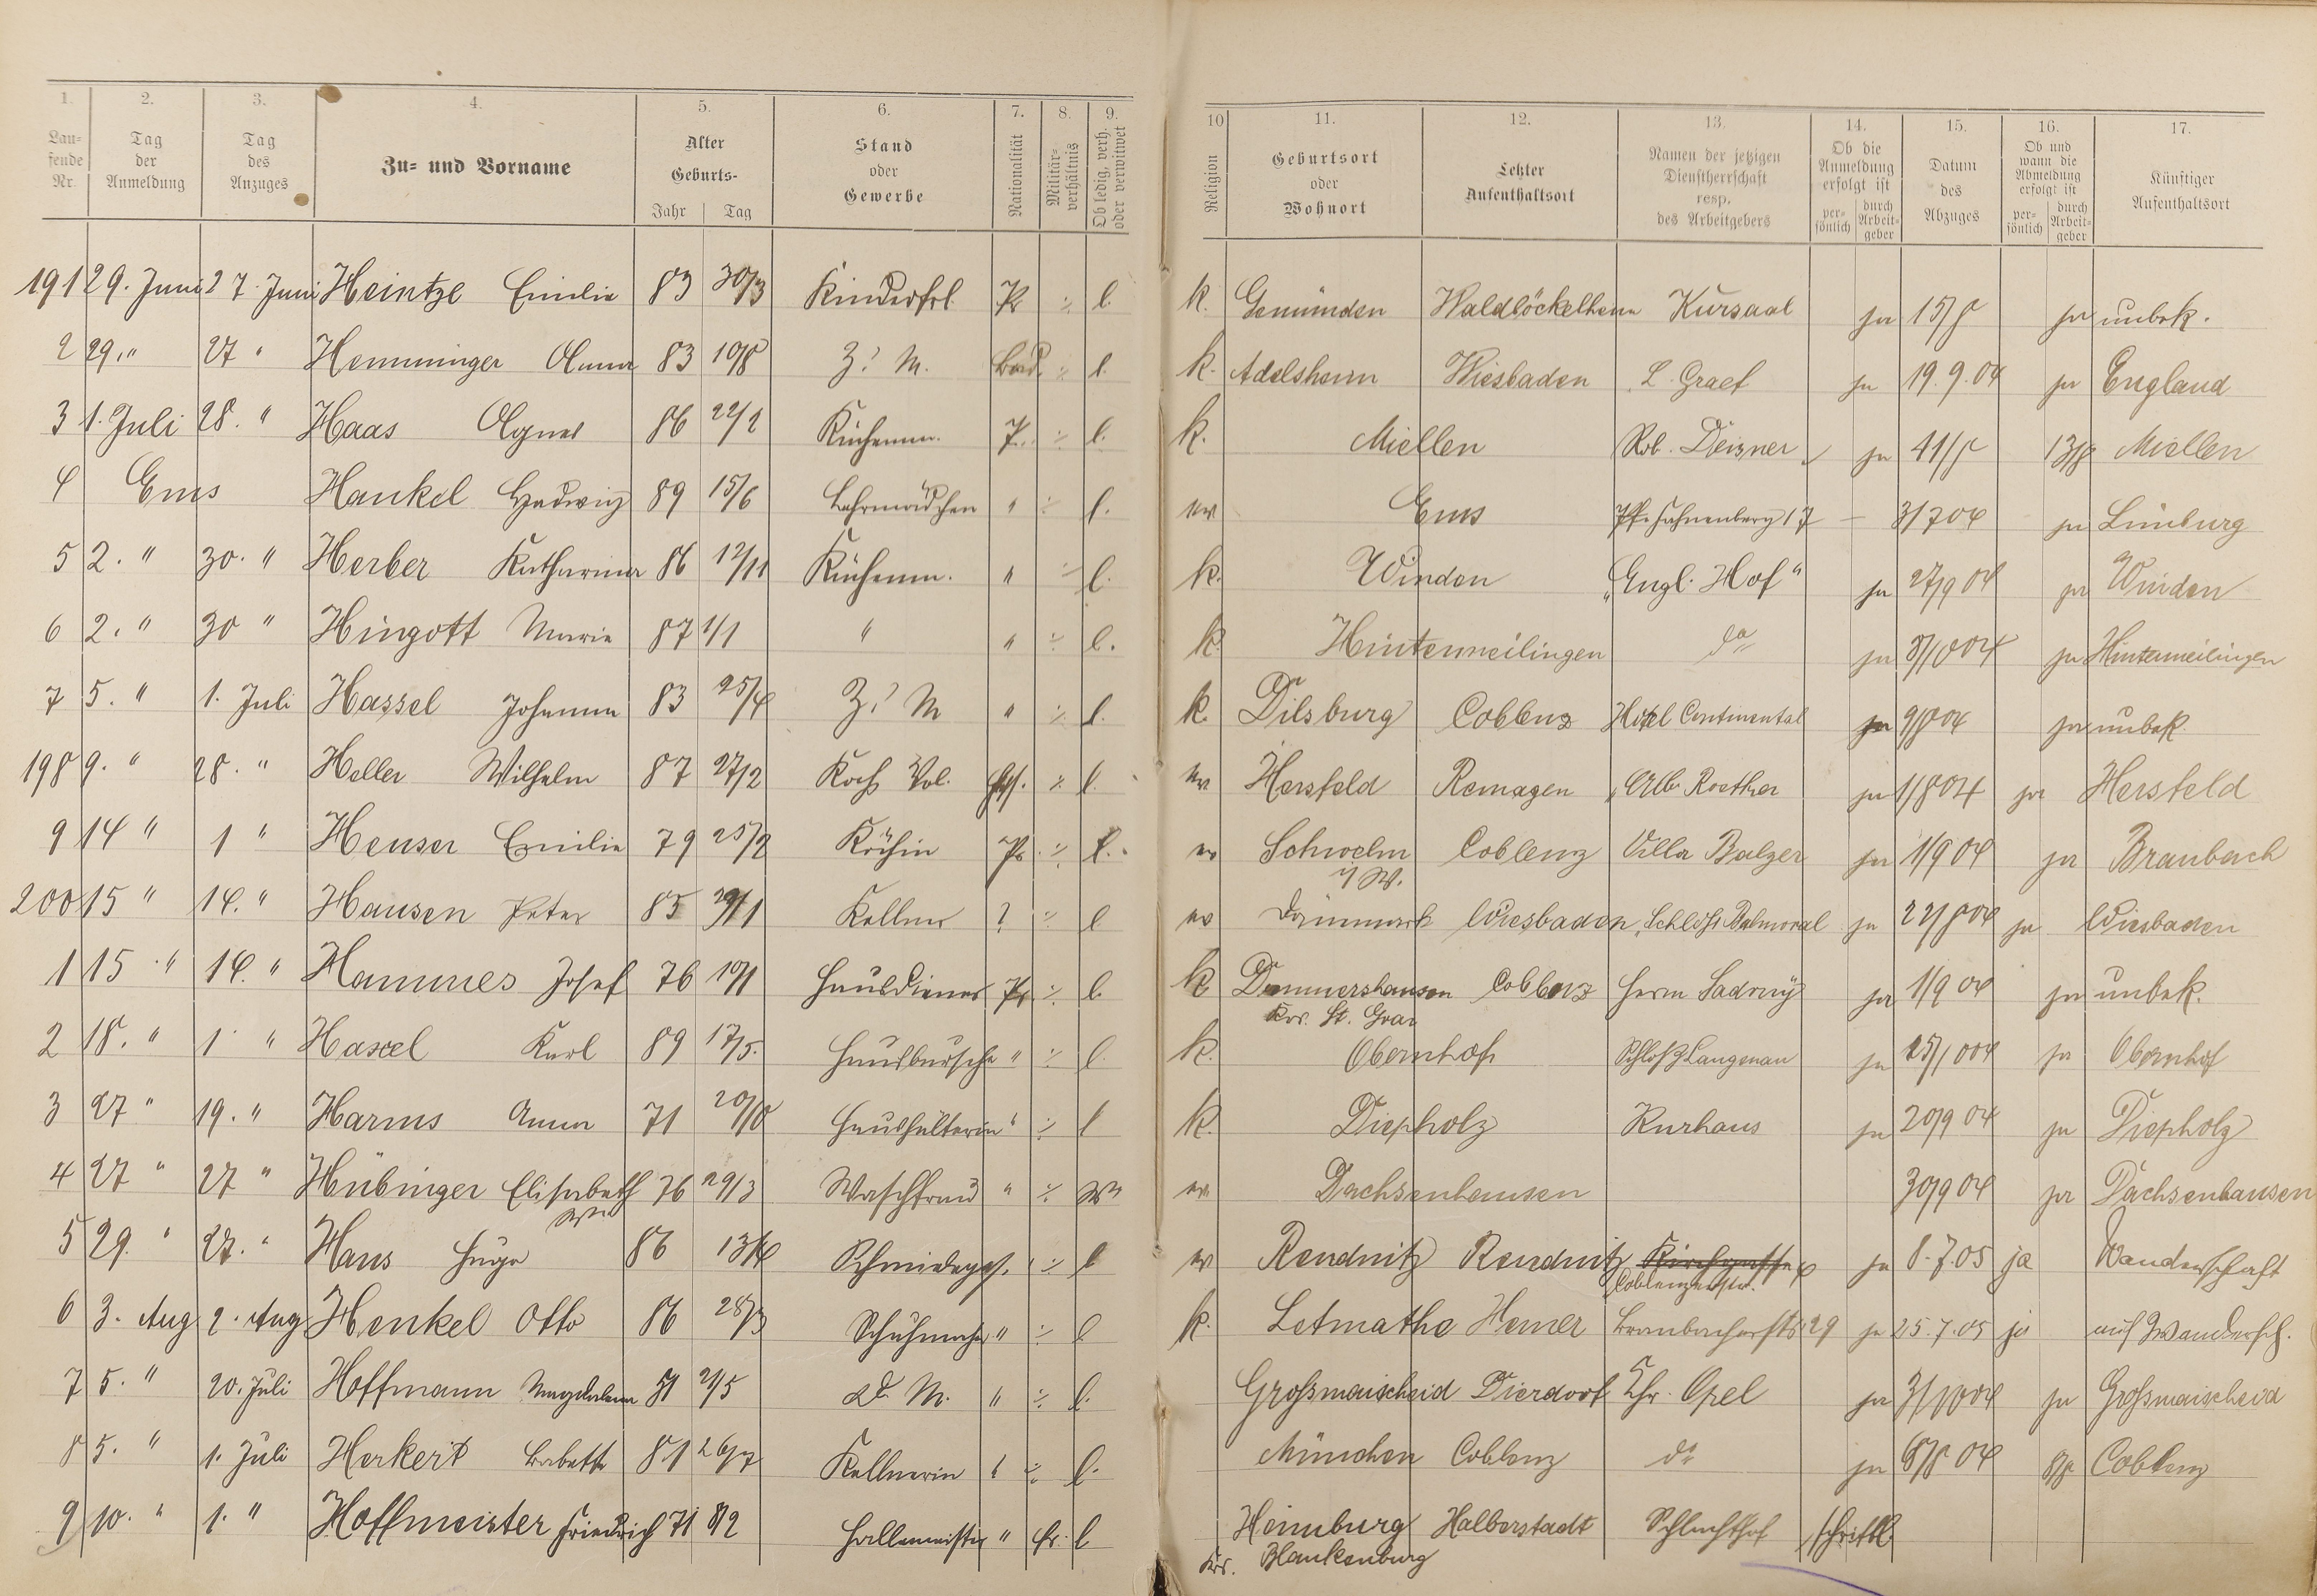 1. 2. 3. 4. 5. 6. 7. 8. 9. 10 11. 12. 13. 14. 15. 16. 17.
Lau-
fende
Nr.
Tag
der
Anmeldung
Tag
des
Anzuges
Zu- und Vorname
Alter
Geburts-
Jahr Tag
Stand
oder
Gewerbe
Nationalität
Militär-
verhältnis
Ob ledig, verh.
oder verwitwet
Religion
Geburtsort
oder
Wohnort
Letzter
Aufenthaltsort
Namen der jetzigen
Dienstherrschaft
resp.
des Arbeitgebers
Ob die
Anmeldung
erfolgt ist
per-
sönlich
durch
Arbeit-
geber
Datum
des
Abzuges
Ob und
wann die
Abmeldung
erfolgt ist
per-
sönlich
durch
Arbeit-
geber
Künftiger
Aufenthaltsort
191 29. Juni 27. Juni Heintze Emilie 83 30/3 Kinderfrl. Pr ./. l. k. Gemünden Waldböckelheim Kursaal ja 15/8 ja unbek.
2 29. " 27 " Hemminger Anna 83 10/8 Z. M. Bad. ./. l. k. Adelsheim Wiesbaden L. Graef ja 19.9.04 ja England
3 1. Juli 28. " Haas Agnes 86 22/2 Küchenm. P. ./. l. k. Miellen Rob. Deisner ja 11/8 13/8 Miellen
4 Ems Hankel Hedwig 89 15/6 Lehrmädchen " ./. l. ev Ems Pfahnenberg 17 – 3/7 04 ja Limburg
5 2. " 30. " Herber Katharina 86 12/11 Küchenm. " ./. l. k. Winden "Engl. Hof" ja 27/9 04 ja Winden
6 2. " 30 " Hingott Marie 87 1/1 " " ./. l. k. Hintermeilingen do ja 8/10 04 ja Hintermeilingen
7 5. " 1. Juli Hassel Johanna 83 25/4 Z. M " ./. l. k. Dilsburg Coblenz Hotel Continental ja 9/8 04 ja unbek.
198 9. " 28. " Heller Wilhelm 87 27/2 Koch Vol. ./. l. ev Hersfeld Remagen Alb. Roether ja 1/8 04 ja Hersfeld
9 14 " 1 " Heuser Emilie 79 25/2 Köchin Pr. ./. l. ev Schwelm i/W. Coblenz Villa Balzer ja 1/9 04 ja Braubach
200 15 " 14. " Hausen Peter 85 Kellner ? ./. l ev Dänmark Wiesbaden Schloß Balmoral ja 22/8 04 ja Wiesbaden
1 15 " 14. " Hammes Josef 76 10/1 Hausdiener Pr ./. l. k Dommershausen Coblenz Herm Sadony ja 1/9 04 ja unbek.
Krs. St. Goar
2 18. " 1 " Hassel Karl 89 17/5. Hausbursche " ./. l. k. Obernhof Schloß Langenau ja 25/10 04 ja Obernhof
3 27 " 19. " Harms Anna 71 20/8 Haushälterin " ./. l k. Diepholz Kurhaus ja 20/9 04 ja Diepholz
4 27 " 27 " Hübinger Elisabeth 76 29/3 Waschfrau " ./. Ww ev Dachsenhausen 30/9 04 ja Dachsenhausen
Wwe
5 29. " 27. " Haus Hugo 86 13/4 Schmiedeges. " ./. l ev Rendnitz Rendnitz Kirchgasse ja 8.7.05 ja Wanderschaft
Coblenzerstr.
6 3. Aug 2. Aug Henkel Otto 86 28/3 Schuhmacher " ./. l k. Letmathe Hemer Braubacherstr 29 ja 25.7.05 ja auf Wandersch.
7 5. " 20. Juli Hoffmann Magdalena 81 2/5 M. " ./. l. Großmaischeid Dierdorf Chr. Opel ja 3/10 04 ja Großmaischeid
8 5. " 1. Juli Herkert Babette 81 26/7 Kellnerin ? ./. l. München Coblenz do ja 6/8 04 8/8 Coblenz
9 10. " 1. " Hoffmeister Friedrich 71 8/2 Hallemeister " l Heimburg Halberstadt Schlachthof schriftl.
Krs. Blankenburg